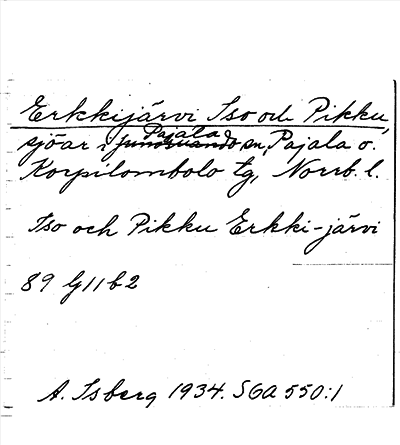 Erkkijärvi Iso och Pikku,
sjöar i Pajala sn, Pajala o.
Korpilombolo tg, Norrb. l.
Iso och Pikku Erkki-järvi
89 G11b2
A. Isberg 1934. SGA 550:1